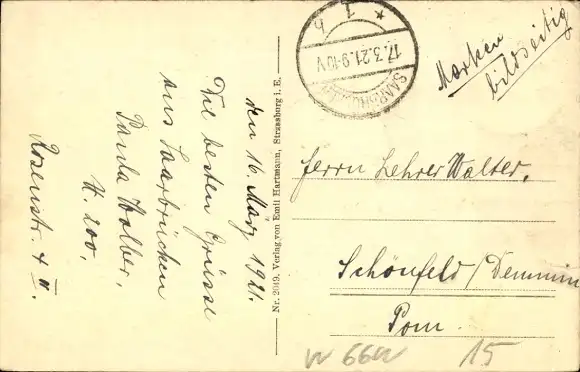 den 16. März 1921.
Die besten Grüsse
aus Saarbrücken
Paula Walber.
H. 200,
Rosenstr. 4 III.
Nr. 2049. Verlag von Emil Hartmann, Strassburg i. E.
17.3.21.9-10V
SAARBRÜCKEN
* 1 b
Marken
bildseitig
Herrn Lehrer Walter,
Schönfeld/Demmin
Pom.
15